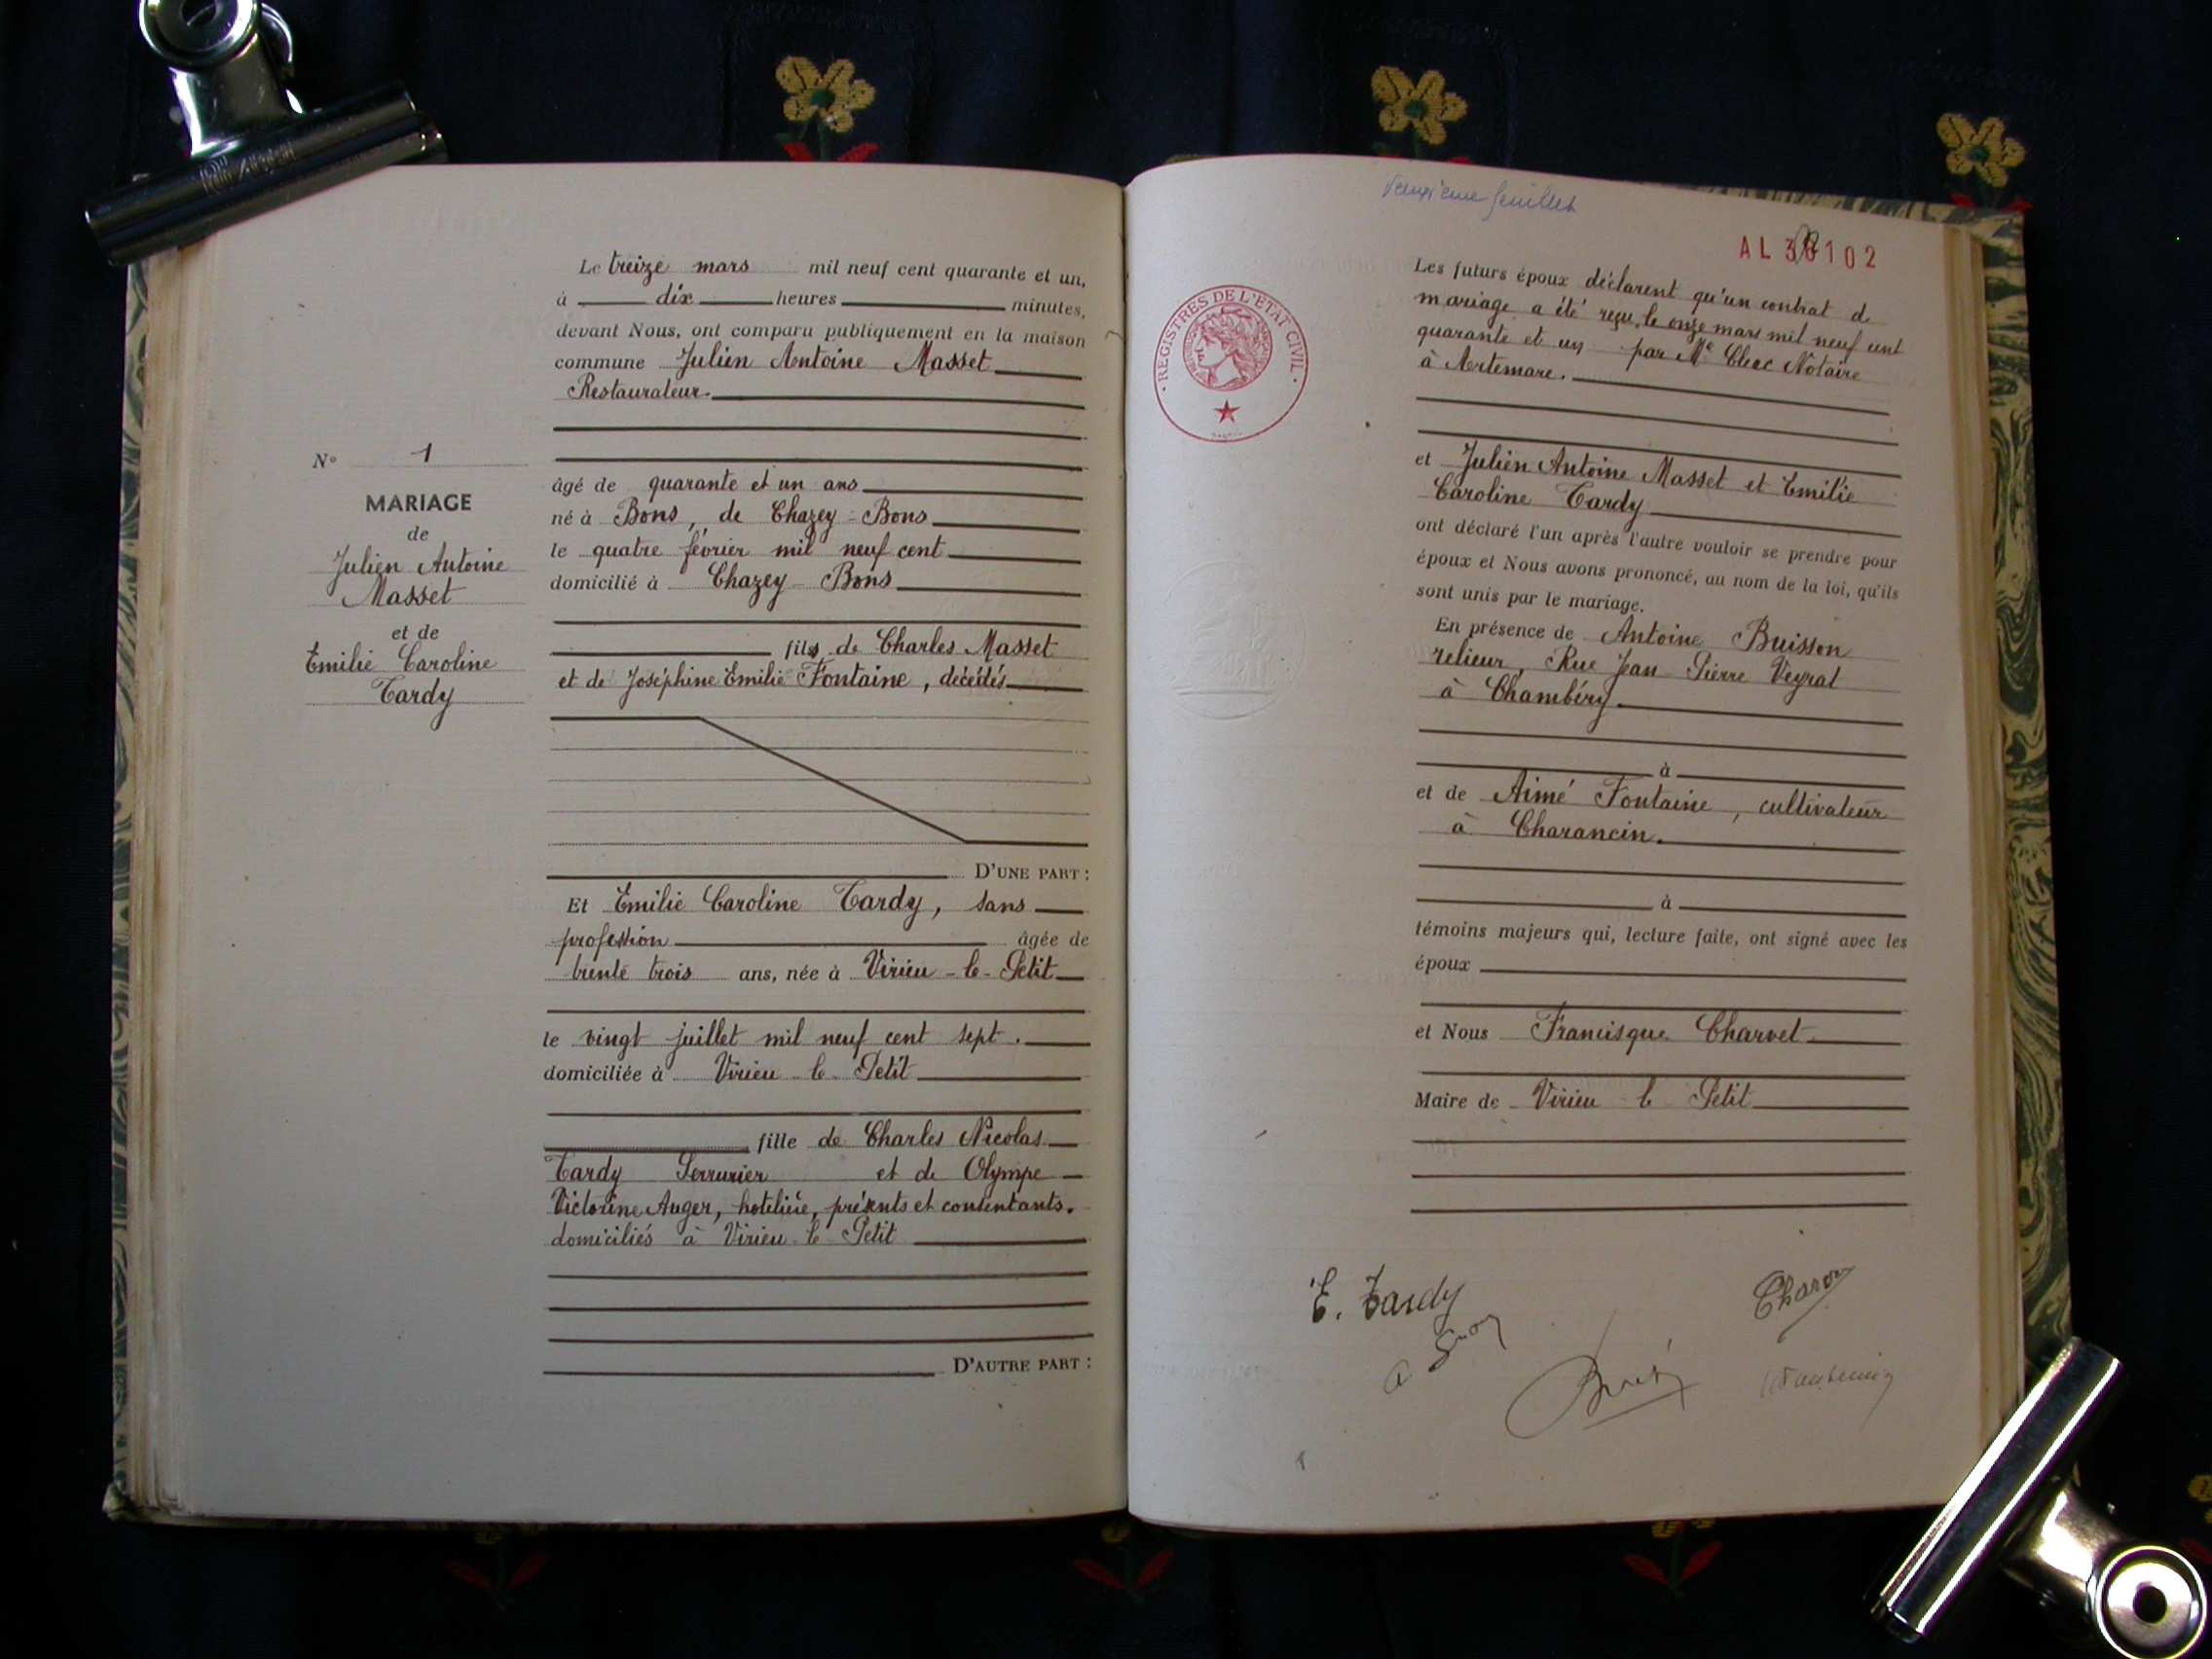 Le treize mars mil neuf cent quarante et un,
à dix heures minutes,
devant Nous, ont comparu publiquement en la maison
commune Julien Antoine Masset
Restaurateur.
N° 1
MARIAGE
de
Julien Antoine
Masset
et de
Emilie Caroline
Tardy
âgé de quarante et un ans
né à Bons, de Chazey-Bons
le quatre février mil neuf cent
domicilié à Chazey-Bons
fils de Charles Masset
et de Joséphine Emilie Fontaine, décédés
D'UNE PART :
Et Emilie Caroline Tardy, sans
profession âgée de
trente trois ans, née à Virieu-le-Petit
le vingt juillet mil neuf cent sept.
domiciliée à Virieu-le-Petit
fille de Charles Nicolas
Tardy Serrurier et de Olympe
Victorine Auger, hotelière, présents et contentants.
domiciliés à Virieu-le-Petit
D'AUTRE PART :
Deuxième feuillet
AL 102
REGISTRES DE L'ÉTAT CIVIL
Les futurs époux déclarent qu'un contrat de
mariage a été reçu le onze mars mil neuf cent
quarante et un par Me Clerc Notaire
à Artemare.
et Julien Antoine Masset et Emilie
Caroline Tardy
ont déclaré l'un après l'autre vouloir se prendre pour
époux et Nous avons prononcé, au nom de la loi, qu'ils
sont unis par le mariage.
En présence de Antoine Buisson
relieur, Rue Jean Pierre Veyrat
à Chambéry
à
et de Aimé Fontaine, cultivateur
à Charancin.
à
témoins majeurs qui, lecture faite, ont signé avec les
époux
et Nous Francisque Charvet
Maire de Virieu le Petit
E. Tardy